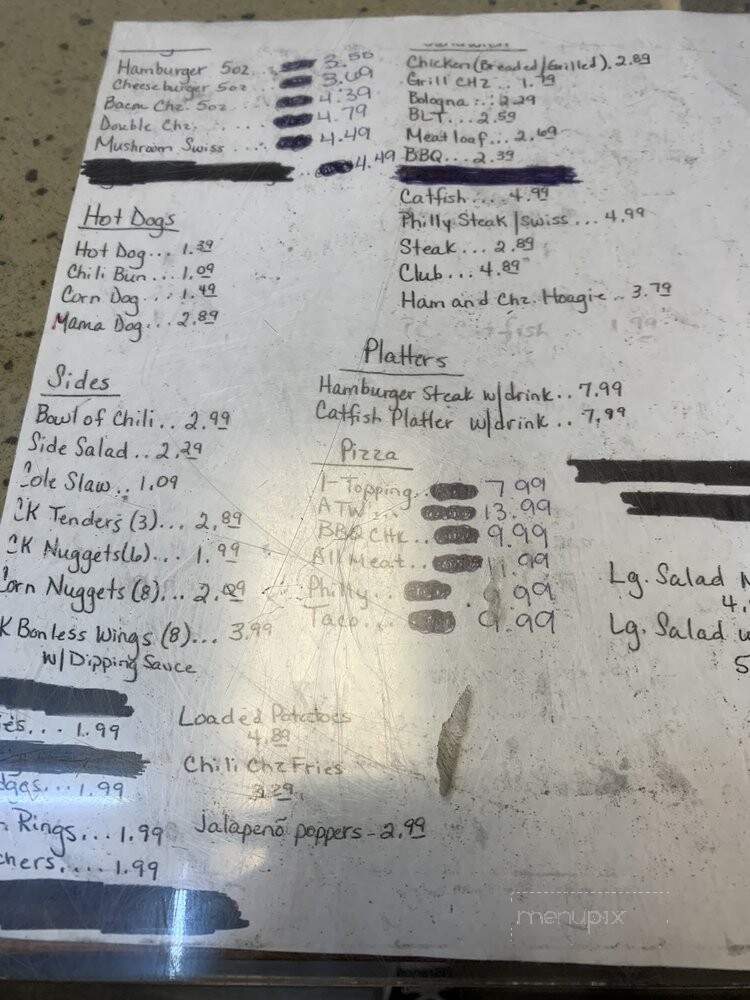 Hamburger 5oz... 3.50
Cheeseburger 5oz.. 3.69
Bacon Chz. 5oz 4.39
Double Chz..... 4.79
Mushroom Swiss.... 4.49
...4.49
Hot Dogs
Hot Dog... 1.39
Chili Bun... 1.09
Corn Dog... 1.49
Mama Dog... 2.89
Sides
Bowl of Chili.. 2.99
Side Salad.. 2.29
Cole Slaw.. 1.09
CK Tenders (3)... 2.89
CK Nuggets(6)... 1.99
Corn Nuggets (8)...
K Bonless Wings (8)... 3.99
w/Dipping Sauce
ies... 1.99
dges... 1.99
Rings... 1.99
chers.... 1.99
Chicken (Breaded/Grilled). 2.89
Grill CHZ... 1.79
Bologna... 2.29
BLT... 2.59
Meatloaf... 2.69
BBQ... 2.39
Catfish.... 4.99
Philly Steak/Swiss... 4.99
Steak... 2.89
Club... 4.89
Ham and Chz. Hoagie.. 3.79
Platters
Hamburger Steak w/drink.. 7.99
Catfish Platter w/drink.. 7.99
Pizza
1-Topping.. 7.99
ATW... 13.99
BBQ CHK.. 9.99
All Meat.. 11.99
Philly... 9.99
Taco... 9.99
Lg. Salad
4.
Lg. Salad w
5
Loaded Potatoes
4.89
Chili Chz Fries
3.29
Jalapeño poppers - 2.99
menupix